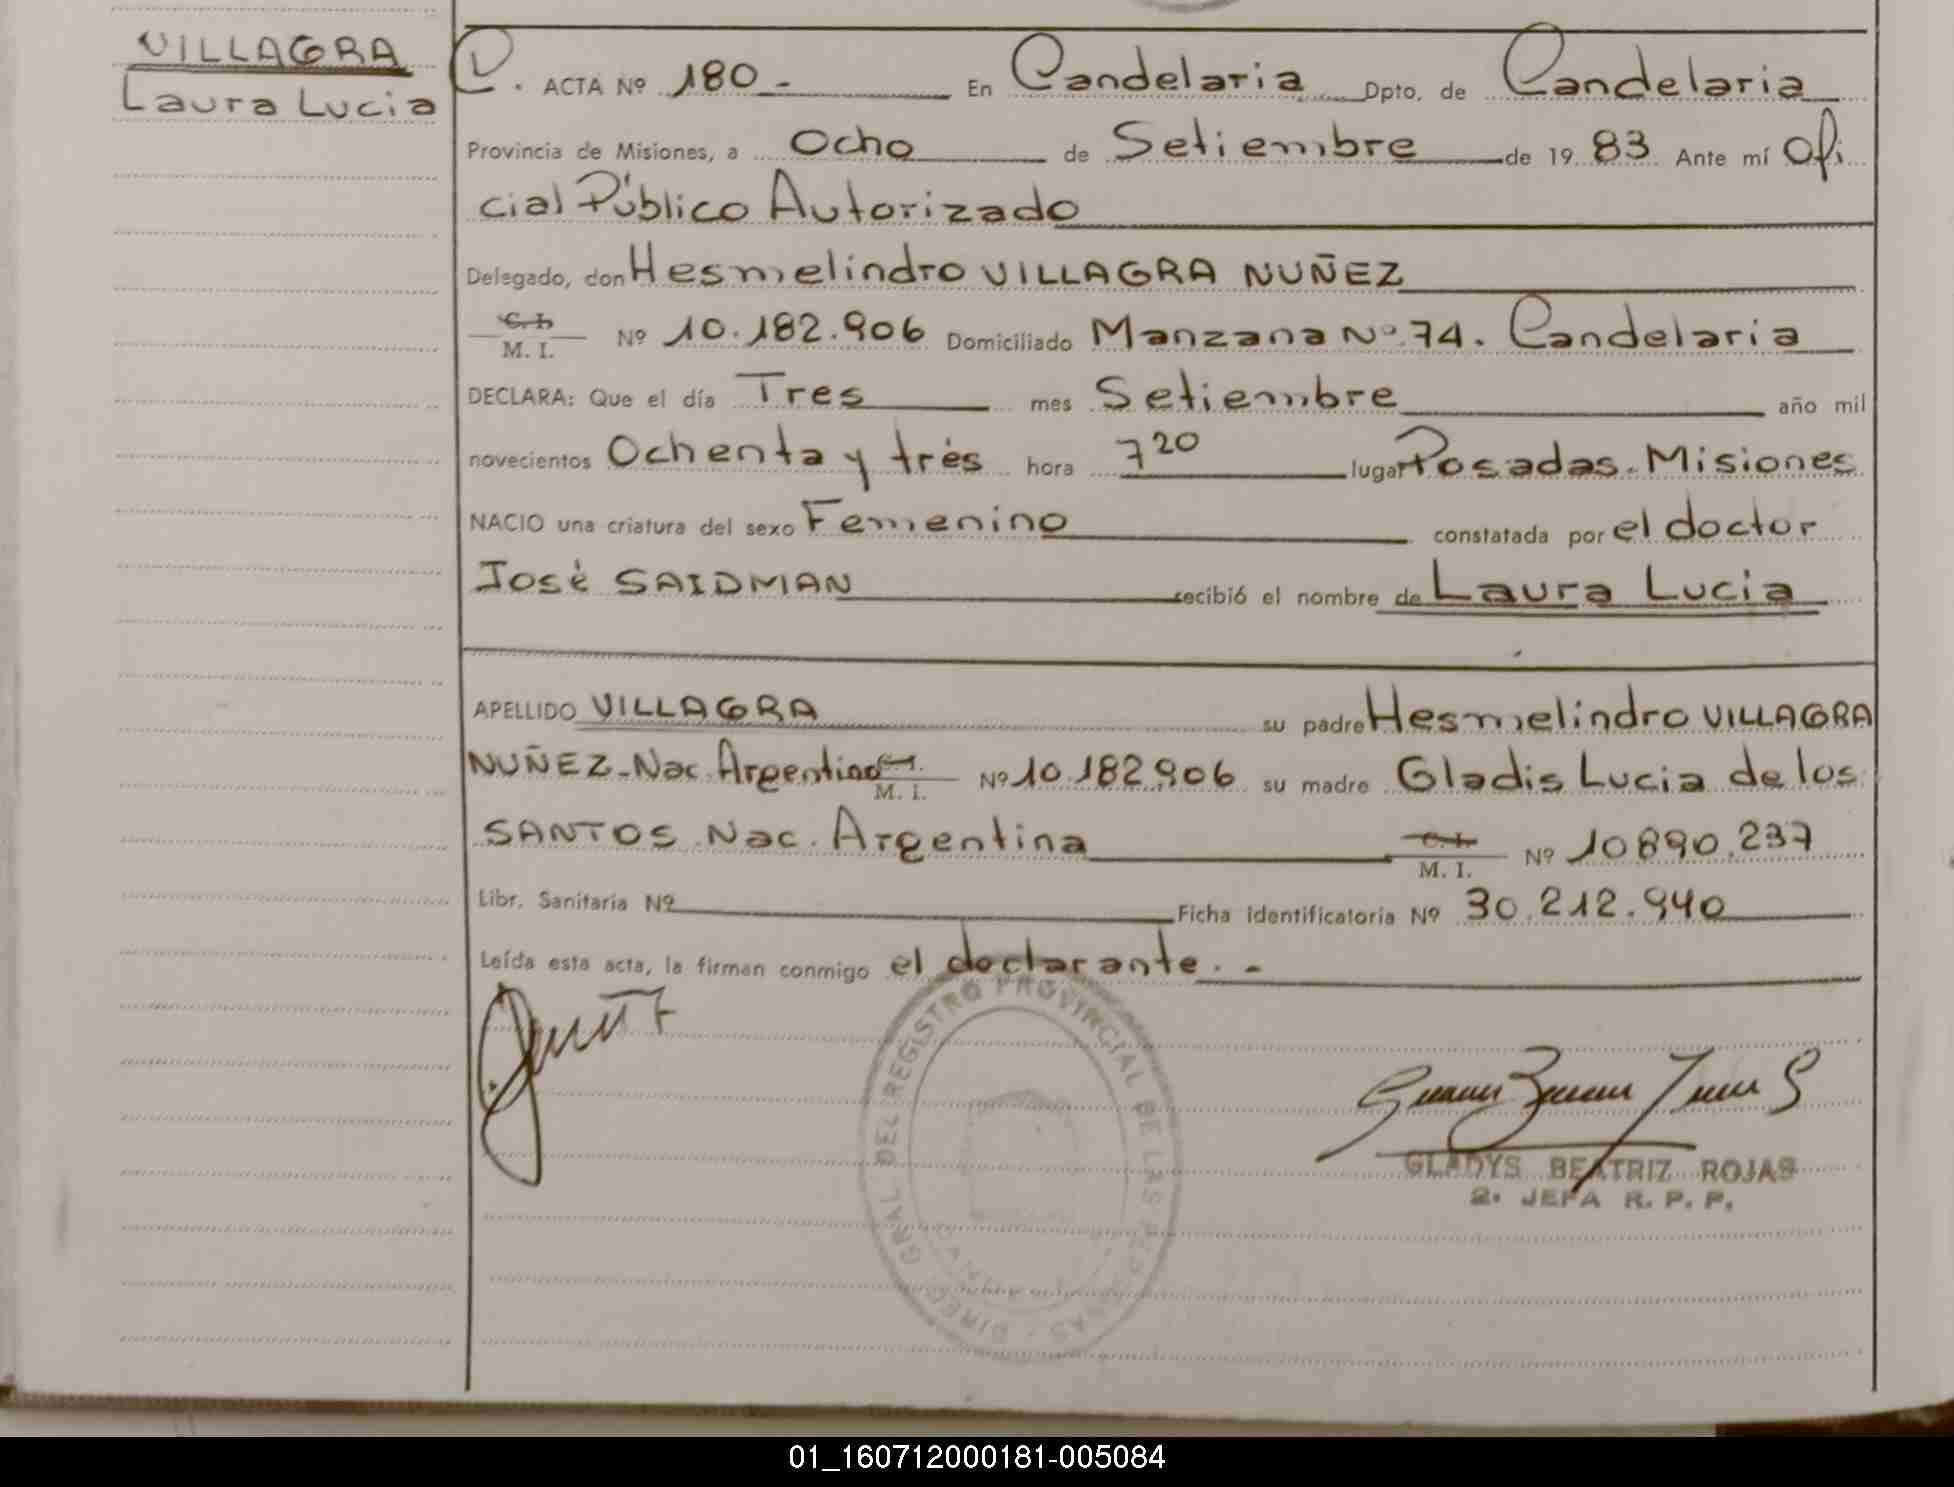 VILLAGRA
Laura Lucia
ACTA Nº 180.- En Candelaria Dpto. de Candelaria
Provincia de Misiones, a Ocho de Setiembre de 1983 Ante mí Ofi
cial Público Autorizado
Delegado, don Hesmelindro VILLAGRA NUÑEZ
C. I. M. I. Nº 10.182.906 Domiciliado Manzana Nº 74. Candelaria
DECLARA: Que el día Tres mes Setiembre año mil
novecientos Ochenta y trés hora 7 20 lugar Posadas. Misiones
NACIO una criatura del sexo Femenino constatada por el doctor
José SAIDMAN recibió el nombre de Laura Lucia
APELLIDO VILLAGRA su padre Hesmelindro VILLAGRA
NUÑEZ-Nac. Argentino C. I. M. I. Nº 10.182.906 su madre Gladis Lucia de los
SANTOS Nac. Argentina C. I. M. I. Nº 10890.237
Libr. Sanitaria Nº Ficha Identificatoria Nº 30.212.940
Leída esta acta, la firman conmigo el declarante. -
DIREC. GRAL. DEL REGISTRO PROVINCIAL DE LAS PERSONAS
GLADYS BEATRIZ ROJAS
2. JEFA R. P. P.
01_160712000181-005084